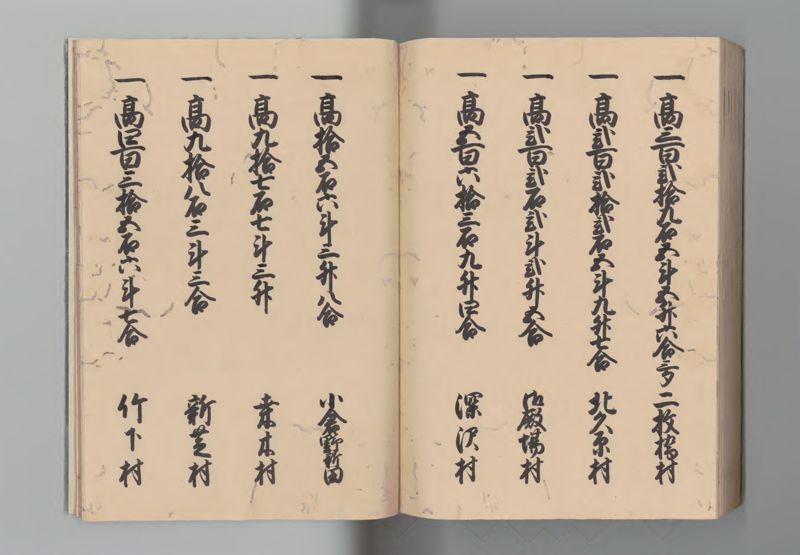 一 高三百弐拾九石五斗五升六合三夕 二枚橋村
一 高弐百弐拾弐石五斗九升七合 北久原村
一 高弐百弐石弐斗弐升五合 御殿場村
一 高五百六拾三石九升四合 深沢村
一 高拾五石六斗三升八合 小倉野新田
一 高九拾七石七斗三升 桒木村
一 高九拾八石三斗三合 新芝村
一 高四百三拾五石六斗七合 竹下村